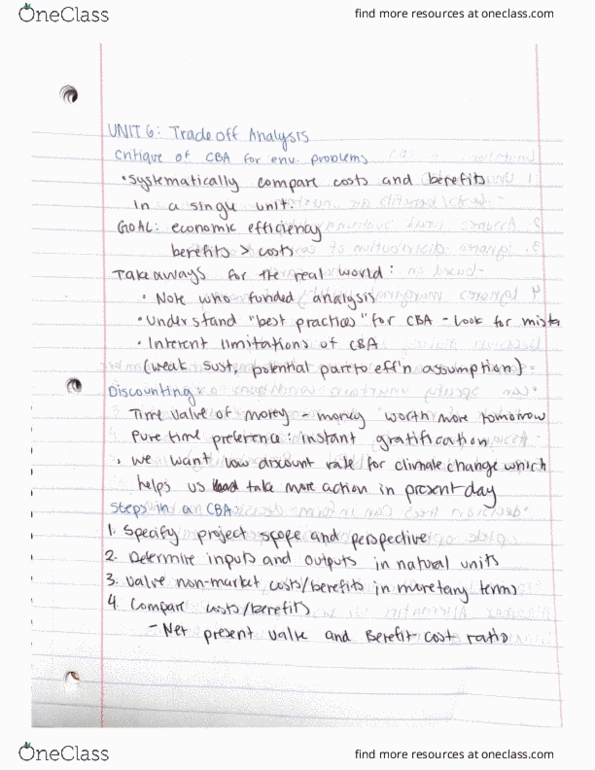 OneClass
find more resources at oneclass.com
UNIT 6: Trade off Analysis
Critique of CBA for env. problems
• Systematically compare costs and benefits
in a single unit.
GOAL: economic efficiency
benefits > costs
Takeaways for the real world:
• Note who funded analysis
• Understand "best practices" for CBA - Look for mista
• Interent limitations of CBA
(weak sust, potential pareto eff'n assumption)
Discounting
Time valve of money - money worth more tomorrow
Pure time preference: instant gratification
• we want low discount rate for climate change which
helps us take more action in present day
Steps in a CBA
1. Specify project scope and perspective
2. Determine inputs and outputs in natural units
3. Valve non-market costs/benefits in monetary terms
4. Compare costs/benefits
- Net present valve and Benefit-cost ratio
OneClass
find more resources at oneclass.com